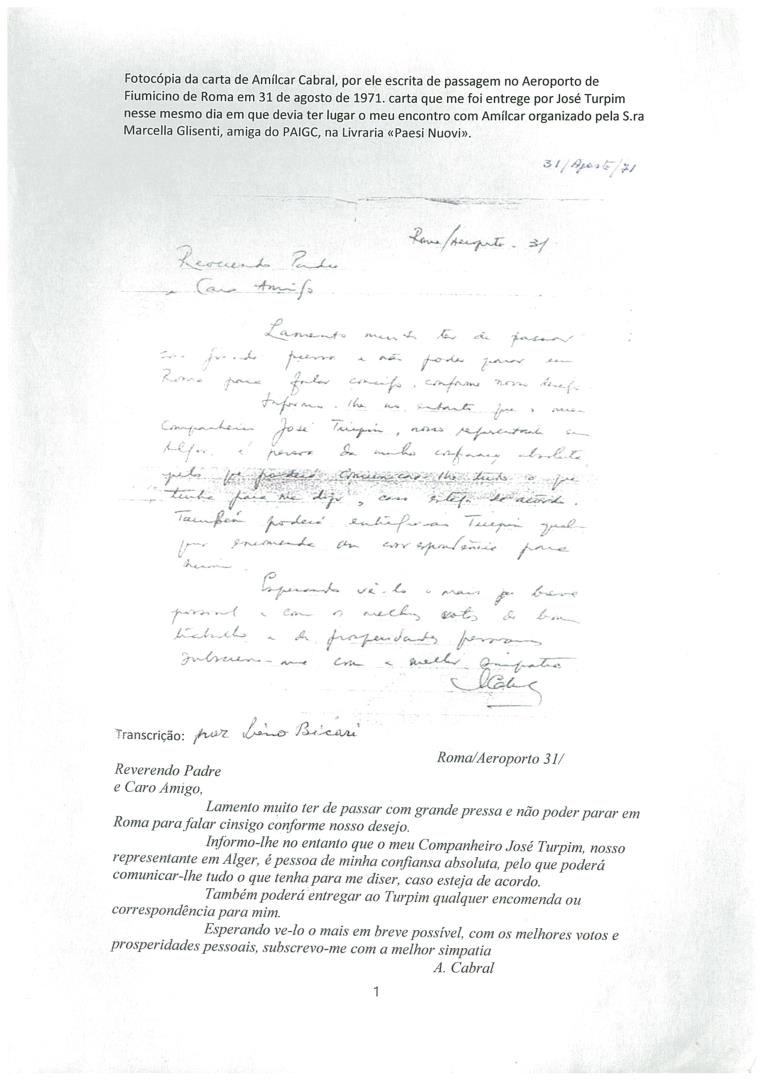 Fotocópia da carta de Amílcar Cabral, por ele escrita de passagem no Aeroporto de
Fiumicino de Roma em 31 de agosto de 1971. carta que me foi entrege por José Turpim
nesse mesmo dia em que devia ter lugar o meu encontro com Amílcar organizado pela S.ra
Marcella Glisenti, amiga do PAIGC, na Livraria «Paesi Nuovi».
31/Agosto/71
Roma/Aeroporto - 31/
Reverendo Padre
e Caro Amigo
Lamento muito ter de passar
com grande pressa e não poder parar em
Roma para falar consigo, conforme nosso desejo.
Informo-lhe no entanto que o meu
Companheiro José Turpin, nosso representante em
Alger, é pessoa da minha confiança absoluta,
pelo que poderá comunicar-lhe tudo o que
tenha para me dizer, caso esteja de acordo.
Também poderá entregar ao Turpin qual-
quer encomenda ou correspondência para
mim.
Esperando vê-lo o mais em breve
possível e com os melhores votos de bom
trabalho e de prosperidades pessoais
subscrevo-me com a melhor simpatia
ACabral
Transcrição: por Lino Bicari
Roma/Aeroporto 31/
Reverendo Padre
e Caro Amigo,
Lamento muito ter de passar com grande pressa e não poder parar em
Roma para falar cinsigo conforme nosso desejo.
Informo-lhe no entanto que o meu Companheiro José Turpim, nosso
representante em Alger, é pessoa de minha confiansa absoluta, pelo que poderá
comunicar-lhe tudo o que tenha para me diser, caso esteja de acordo.
Também poderá entregar ao Turpim qualquer encomenda ou
correspondência para mim.
Esperando ve-lo o mais em breve possível, com os melhores votos e
prosperidades pessoais, subscrevo-me com a melhor simpatia
A. Cabral
1